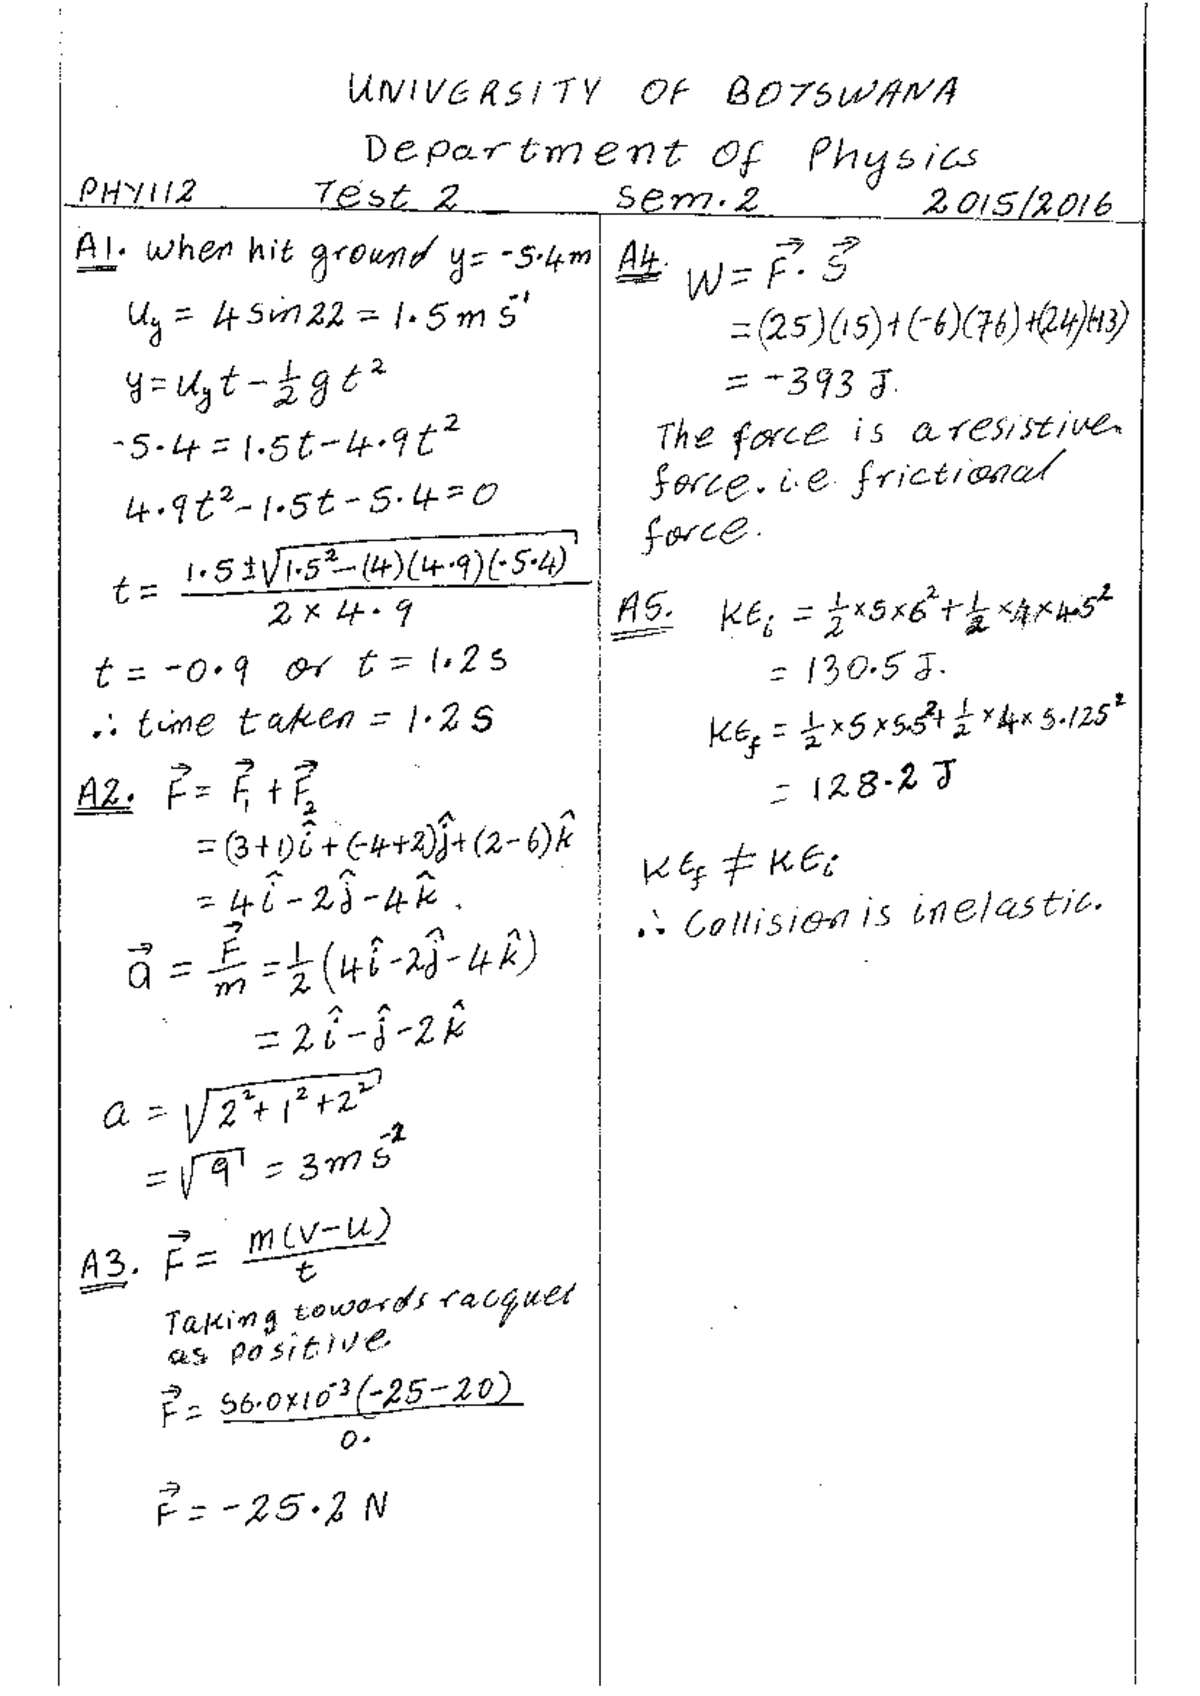 UNIVERSITY OF BOTSWANA
Department of Physics
PHY112 Test 2 Sem.2 2015/2016
A1. When hit ground y= -5.4m
u_y = 4 sin22 = 1.5 m s⁻¹
y = u_y t - ½ g t²
-5.4 = 1.5t - 4.9t²
4.9t² - 1.5t - 5.4 = 0
t = (1.5 ± √(1.5² - (4)(4.9)(-5.4))) / (2 × 4.9)
t = -0.9 or t = 1.2 s
∴ time taken = 1.2 s
A2. F⃗ = F⃗₁ + F⃗₂
= (3+1)î + (-4+2)ĵ + (2-6)k̂
= 4î - 2ĵ - 4k̂.
a⃗ = F⃗/m = ½ (4î - 2ĵ - 4k̂)
= 2î - ĵ - 2k̂
a = √(2² + 1² + 2²)
= √9 = 3 m s⁻²
A3. F⃗ = m(v-u) / t
Taking towards racquet
as positive
F⃗ = 56.0×10⁻³(-25-20) / 0.
F⃗ = -25.2 N
A4. W = F⃗ . S⃗
= (25)(15) + (-6)(76) + (24)(-13)
= -393 J.
The force is a resistive
force. i.e. frictional
force.
A5. KE_i = ½ × 5 × 6² + ½ × 4 × 4.5²
= 130.5 J.
KE_f = ½ × 5 × 5.5² + ½ × 4 × 5.125²
= 128.2 J
KE_f ≠ KE_i
∴ Collision is inelastic.